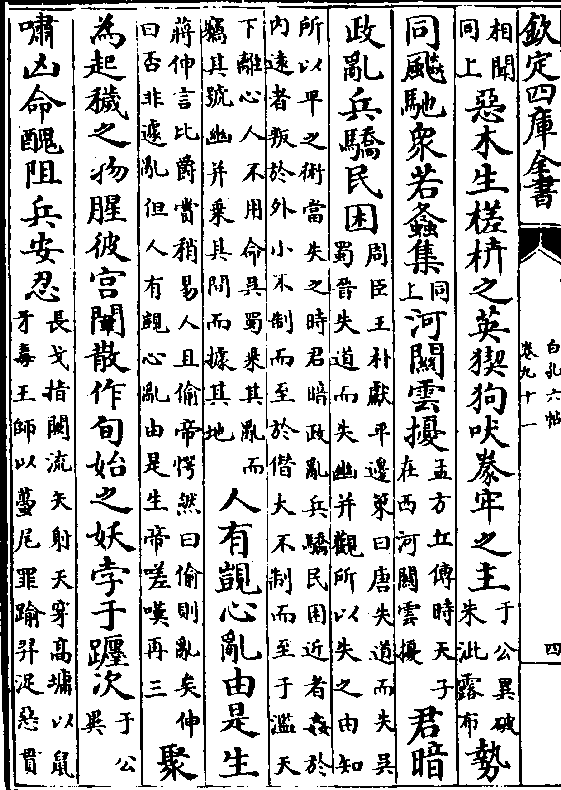 欽定四庫全書
白孔六帖
卷九十一
四
相聞
同上
惡木生槎枿之英猰狗吠豢牢之主
于公異破
朱泚露布
勢
同飈馳衆若螽集
同
上
河闗雲擾
孟方立傳時天子
在西河闗雲擾
君暗
政亂兵驕民困
周臣王朴獻平邊策曰唐失道而失吳
蜀晉失道而失幽并觀所以失之由知
所以平之術當失之時君暗政亂兵驕民困近者姦於
内遠者叛於外小不制而至於僭大不制而至于濫天
下離心人不用命吳蜀乘其亂而
竊其號幽并乘其間而據其地
人有覬心亂由是生
蔣伸言比爵賞稍易人且偷帝愕然曰偷則亂矣伸
曰否非遽亂但人有覬心亂由是生帝嗟嘆再三
聚
為起穢之物腥彼宫闈散作旬始之妖孛于躔次
于公
異
嘯凶命醜阻兵安忍
長戈指闕流矢射天穿高墉以鼠
牙毒王師以蠆尾罪踰羿浞惡貫